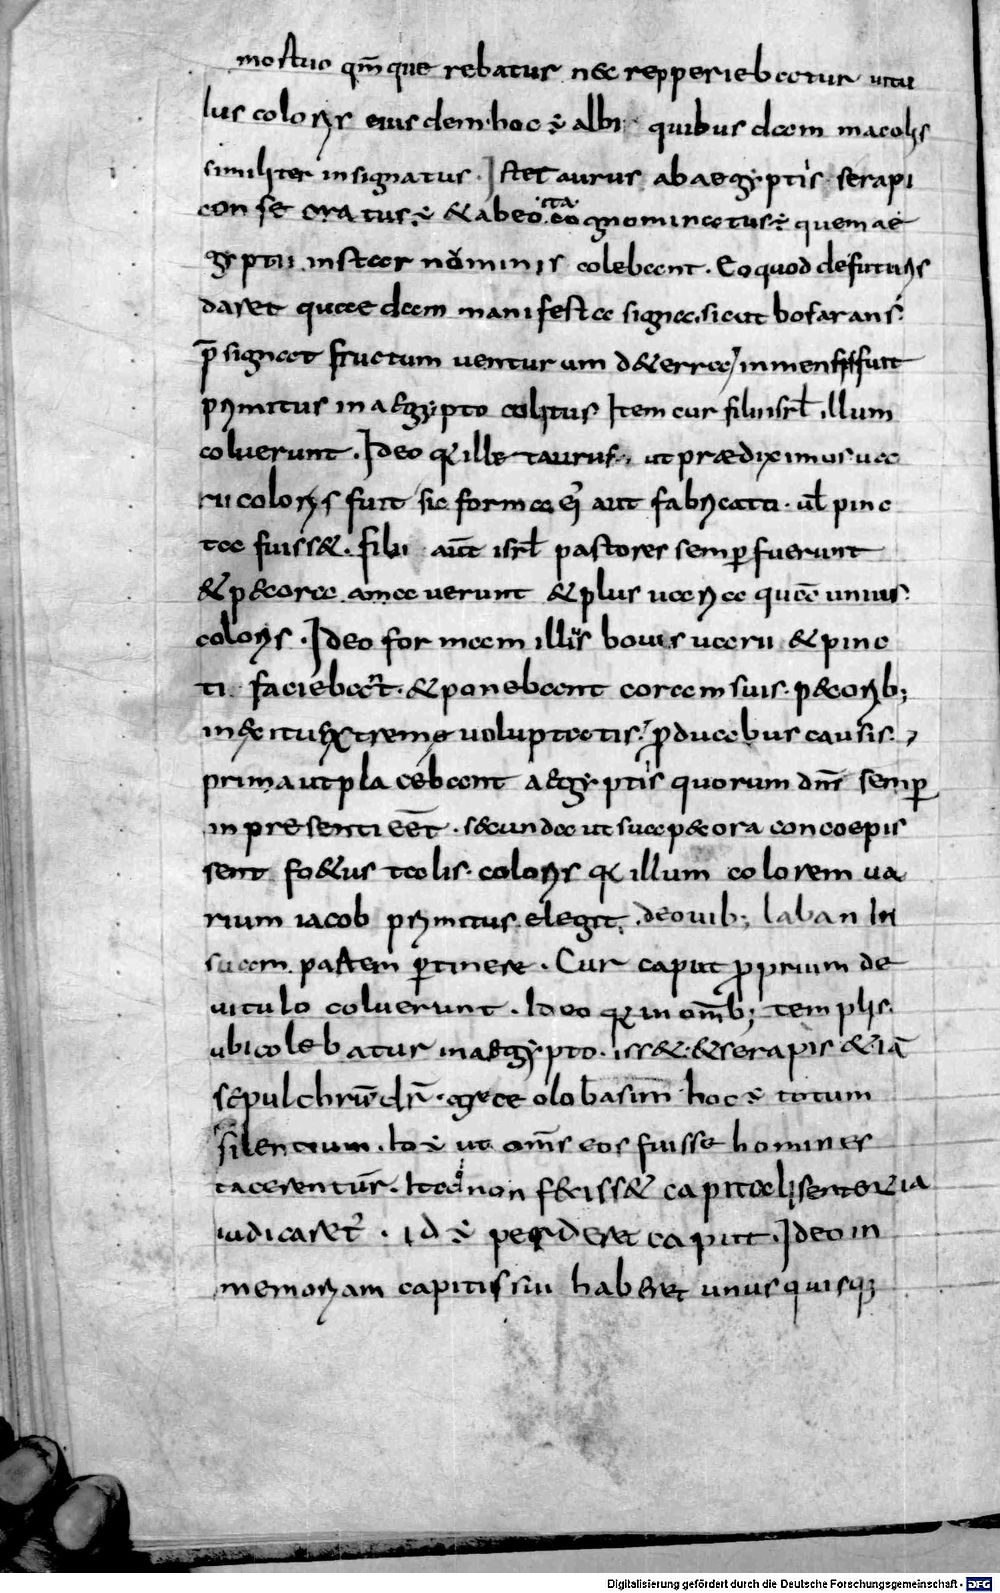 mortuo qm̄ querebatur nec repperiebatur uitu
lus coloris eiusdem · hoc ÷ albi quibusdam macolis
similiter insignatus · Iste taurus ab aegyptis · serapi
con se oratus ÷ & ab eo ita cognominatus ÷ quem ae
gyptii instar nominis colebant · Eo quod de futuris
daret quaedam manifesta signa sicut bos farans
p̄signat fructum uentur um d& erra inmens fuit
primitus in aegypto colitus Item cur filii isrl̄ illum
coluerunt · Ideo q ille taurus · ut praediximus ua
rii coloris fuit sic forma ei aut fabricata · ul̄ pinc
ta fuiss& · filii aut̄ isrl̄ pastores semp fuerunt
& pecora amauerunt & plus uaria quā unius
coloris · Ideo formam illius bouis uarii & pinc
ti faciebant · & ponebant coram suis · pecorib;
in coitu extremo uoluptatis · p duabus causis ·
prima ut placebant aegyptis quorum dn̄i semp
in presenti eēt · secunda ut sua pecora concoepis
sent fo&us talis · coloris q illum colorem ua
rium iacob primitus elegit · de ouib; laban in
suam partem ptinere · Cur caput pprium de
uitulo coluerunt · Ideo q in om̄ib; templis ·
ubi colebatur in aegypto · iss& · & serapis & iā
sepulchrū dr̄ · grece olobasim hoc ÷ totum
silentium · hoc ÷ ut om̄s eos fuisse homines
tacerentur̄ · Ita q non feciss& capitali sententia
iudicaret̄ · id ÷ perderet caput · Ideo in
memoriam capitis sui haberet unusquisq;
Digitalisierung gefördert durch die Deutsche Forschungsgemeinschaft - DFG